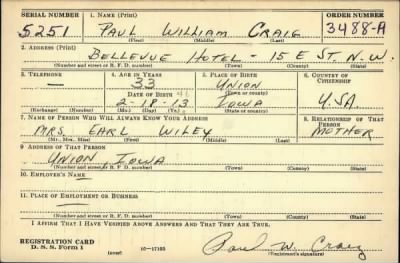 SERIAL NUMBER 1. NAME (Print) ORDER NUMBER
5251 PAUL WILLIAM CRAIG 3488-A
(First) (Middle) (Last)
2. ADDRESS (Print)
BELLEVUE HOTEL - 15 E ST. N.W.
(Number and street or R. F. D. number) (Town) (County) (State)
3. TELEPHONE 4. AGE IN YEARS 5. PLACE OF BIRTH 6. COUNTRY OF CITIZENSHIP
— 33 UNION
DATE OF BIRTH (Town or county)
2-18-13 IOWA USA
(Exchange) (Number) (Mo.) (Day) (Yr.) (State or country)
7. NAME OF PERSON WHO WILL ALWAYS KNOW YOUR ADDRESS 8. RELATIONSHIP OF THAT PERSON
MRS. EARL WILEY MOTHER
(Mr., Mrs., Miss) (First) (Middle) (Last)
9. ADDRESS OF THAT PERSON
UNION, IOWA
(Number and street or R. F. D. number) (Town) (County) (State)
10. EMPLOYER'S NAME
11. PLACE OF EMPLOYMENT OR BUSINESS
(Number and street or R. F. D. number) (Town) (County) (State)
I AFFIRM THAT I HAVE VERIFIED ABOVE ANSWERS AND THAT THEY ARE TRUE.
REGISTRATION CARD
D. S. S. Form 1 (over) 16—17105 Paul W. Craig
(Registrant's signature)